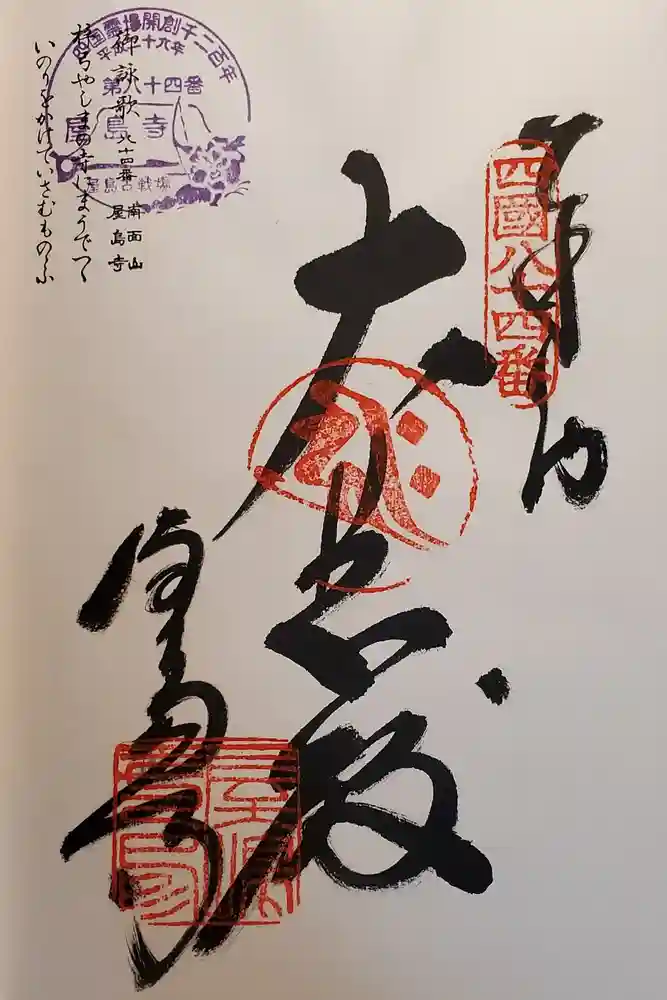 四國八十四番
奉納
大悲殿
屋島寺
四国霊場開創千二百年
平成二十六年
第八十四番
屋島寺
屋島古戦場
御詠歌 八十四番 南面山 屋島寺
梓弓やしまの寺にまうでつゝ
いのりをかけていさむものゝふ